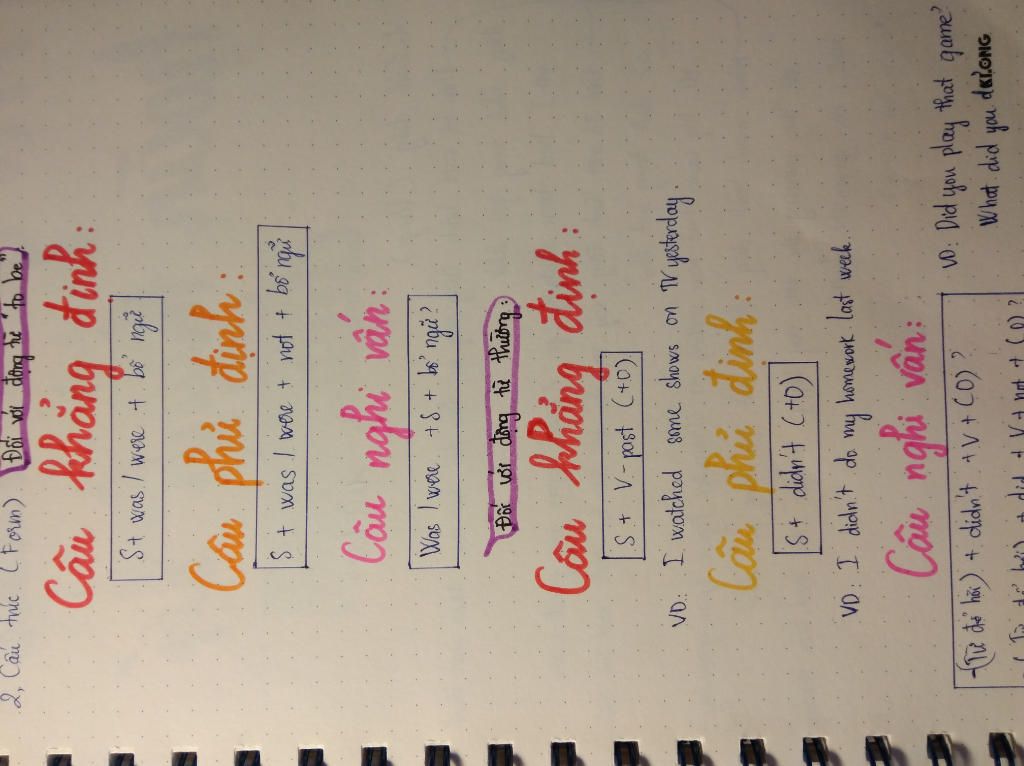 2, Cấu trúc (Form)
Đối với động từ "to be"
Câu khẳng định:
S + was / were + bổ ngữ
Câu phủ định:
S + was / were + not + bổ ngữ
Câu nghi vấn:
Was / were + S + bổ ngữ?
Đối với động từ thường:
Câu khẳng định:
S + V - past (+O)
VD: I watched some shows on TV yesterday.
Câu phủ định:
S + didn't (+O)
VD: I didn't do my homework last week.
Câu nghi vấn:
-(Từ để hỏi) + didn't + V + (O)?
(Từ để hỏi) + did + V + not + (O)?
VD: Did you play that game?
What did you